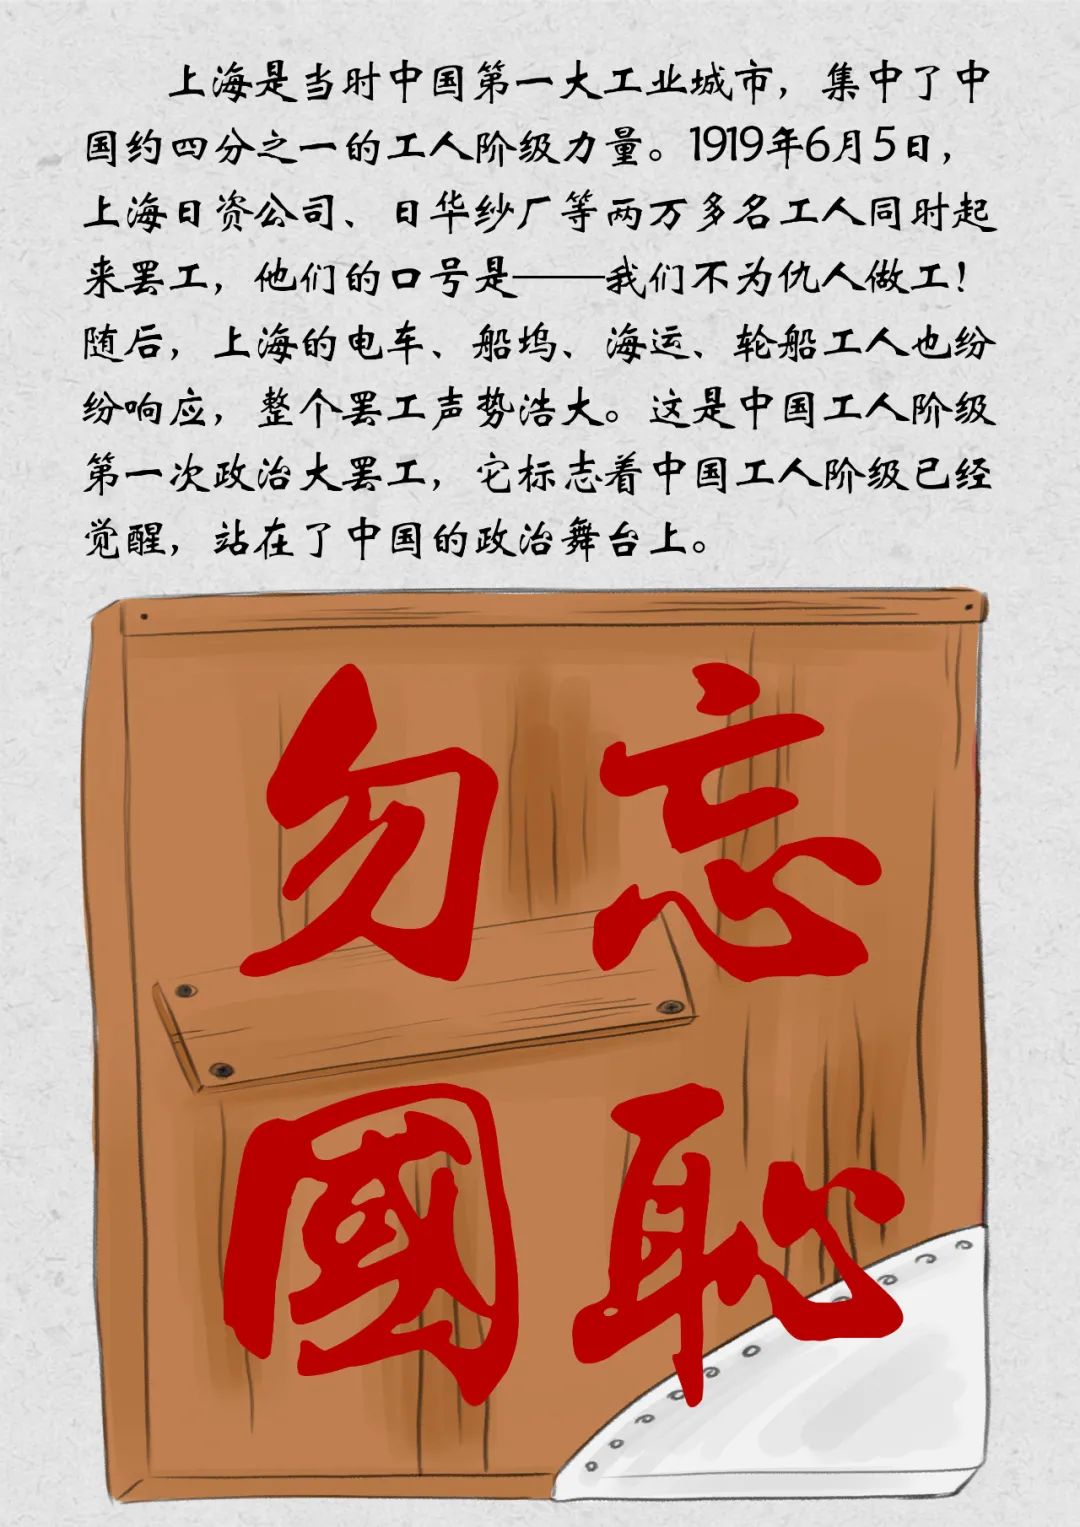 上海是当时中国第一大工业城市，集中了中
国约四分之一的工人阶级力量。1919年6月5日，
上海日资公司、日华纱厂等两万多名工人同时起
来罢工，他们的口号是——我们不为仇人做工！
随后，上海的电车、船坞、海运、轮船工人也纷
纷响应，整个罢工声势浩大。这是中国工人阶级
第一次政治大罢工，它标志着中国工人阶级已经
觉醒，站在了中国的政治舞台上。
勿忘
國恥